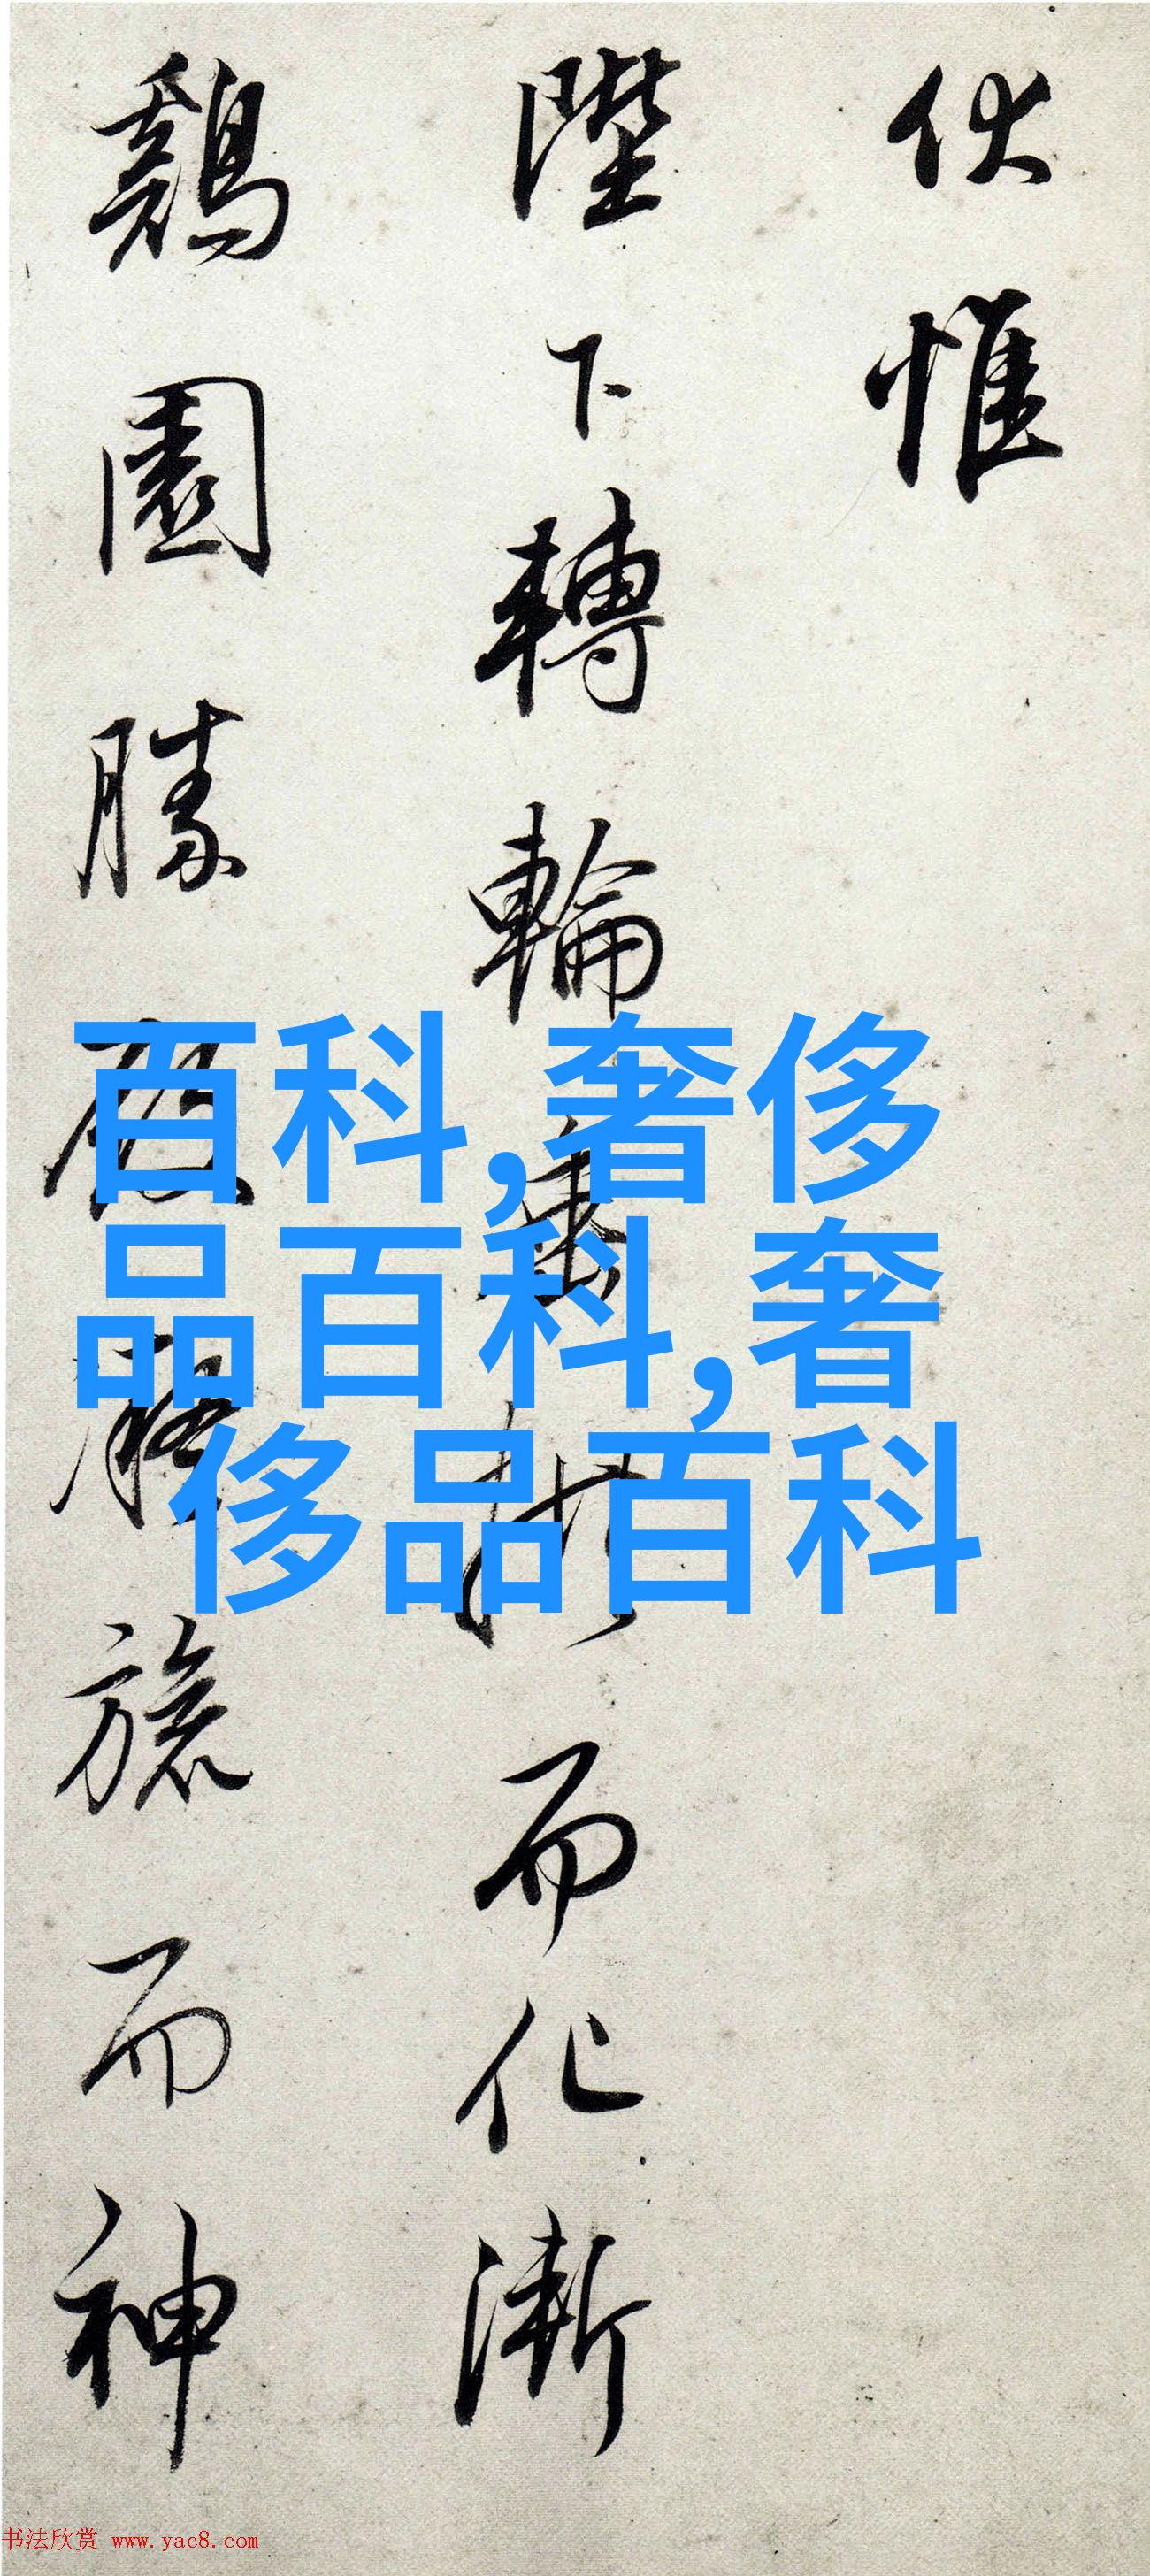 伏惟
陛下轉輪垂拱而化漸
鷄園勝殿駱旅而神
百科,奢侈
品百科,奢
侈品百科
书法欣赏 www.yac8.com